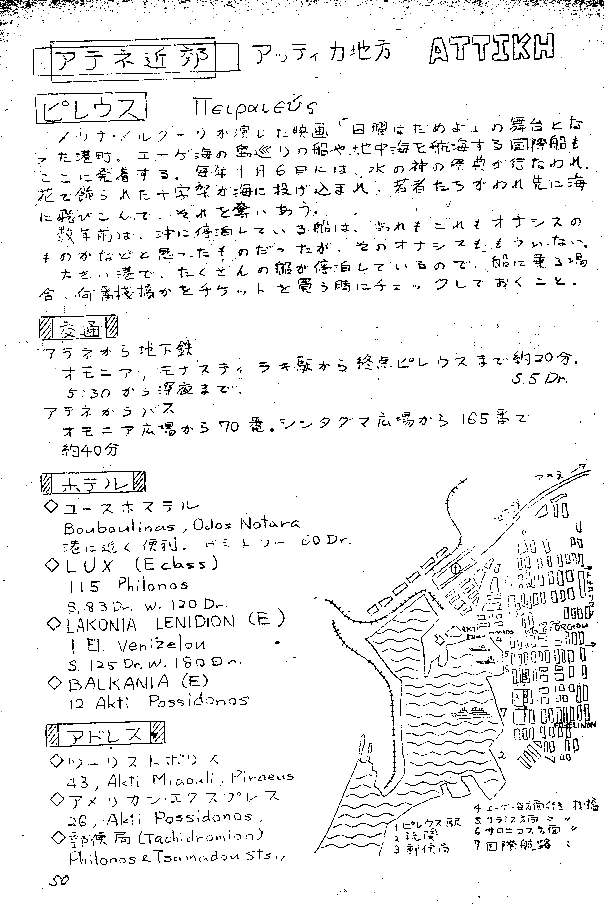 アテネ近郊 アッティカ地方 ATTIKH
ピレウス Πειραιεύς
メリナ・メルクーリが演じた映画「日曜はだめよ」の舞台とな
った港町。エーゲ海の島巡りの船や、地中海を航海する国際船も
ここに発着する。毎年1月6日には、水の神の祭典が行なわれ、
花で飾られた十字架が海に投げ込まれ、若者たちがわれ先に海
に飛びこんで、それを奪いあう。
数年前は、沖に停泊している船は、あれもこれもオナシスの
ものかなどと思ったものだったが、そのオナシスももういない。
大きい港で、たくさんの船が停泊しているので、船に乗る場
合、何番桟橋かをチケットを買う時にチェックしておくこと。
交通
アテネから地下鉄
オモニア、モナスティラキ駅から終点ピレウスまで約20分。
5:30から深夜まで。 5.5 Dr.
アテネからバス
オモニア広場から70番。シンタグマ広場から165番で
約40分
ホテル
◇ユースホステル
Bouboulinas, Odos Notara
港に近く便利。ドミトリー 60 Dr.
◇LUX (E class)
115 Philonos
S. 83 Dr. W. 120 Dr.
◇LAKONIA LENIDION (E)
1 El. Venizelou
S. 125 Dr. W. 180 Dr.
◇BALKANIA (E)
12 Akti Possidonos
アドレス
◇ツーリストポリス
43, Akti Miaouli, Piraeus
◇アメリカン・エクスプレス
26, Akti Possidonos,
◇郵便局 (Tachidromion)
Philonos & Tsamadou Sts.,
アテネ
1 ピレウス駅
2 税関
3 郵便局
4 エーゲ海方面行き 桟橋
5 クレタ方面 〃
6 サロニコス方面 〃
7 国際航路 〃
50